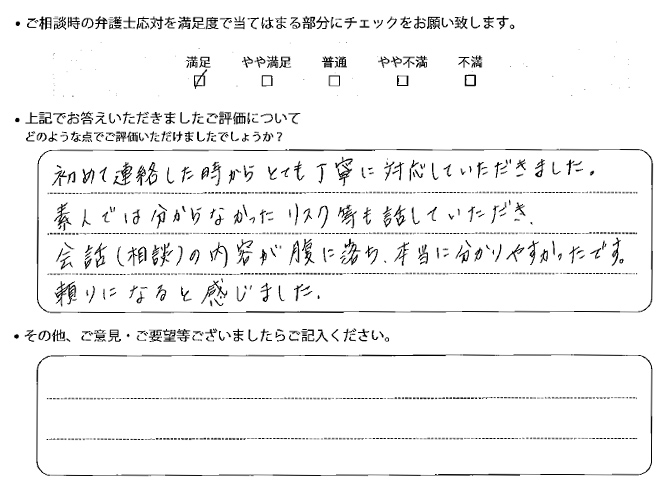 ・ご相談時の弁護士応対を満足度で当てはまる部分にチェックをお願い致します。
満足 やや満足 普通 やや不満 不満
・上記でお答えいただきましたご評価について
どのような点でご評価いただけましたでしょうか?
初めて連絡した時からとても丁寧に対応していただきました。
素人では分からなかったリスク等も話していただき、
会話(相談)の内容が腹に落ち、本当に分かりやすかったです。
頼りになると感じました。
・その他、ご意見・ご要望等ございましたらご記入ください。